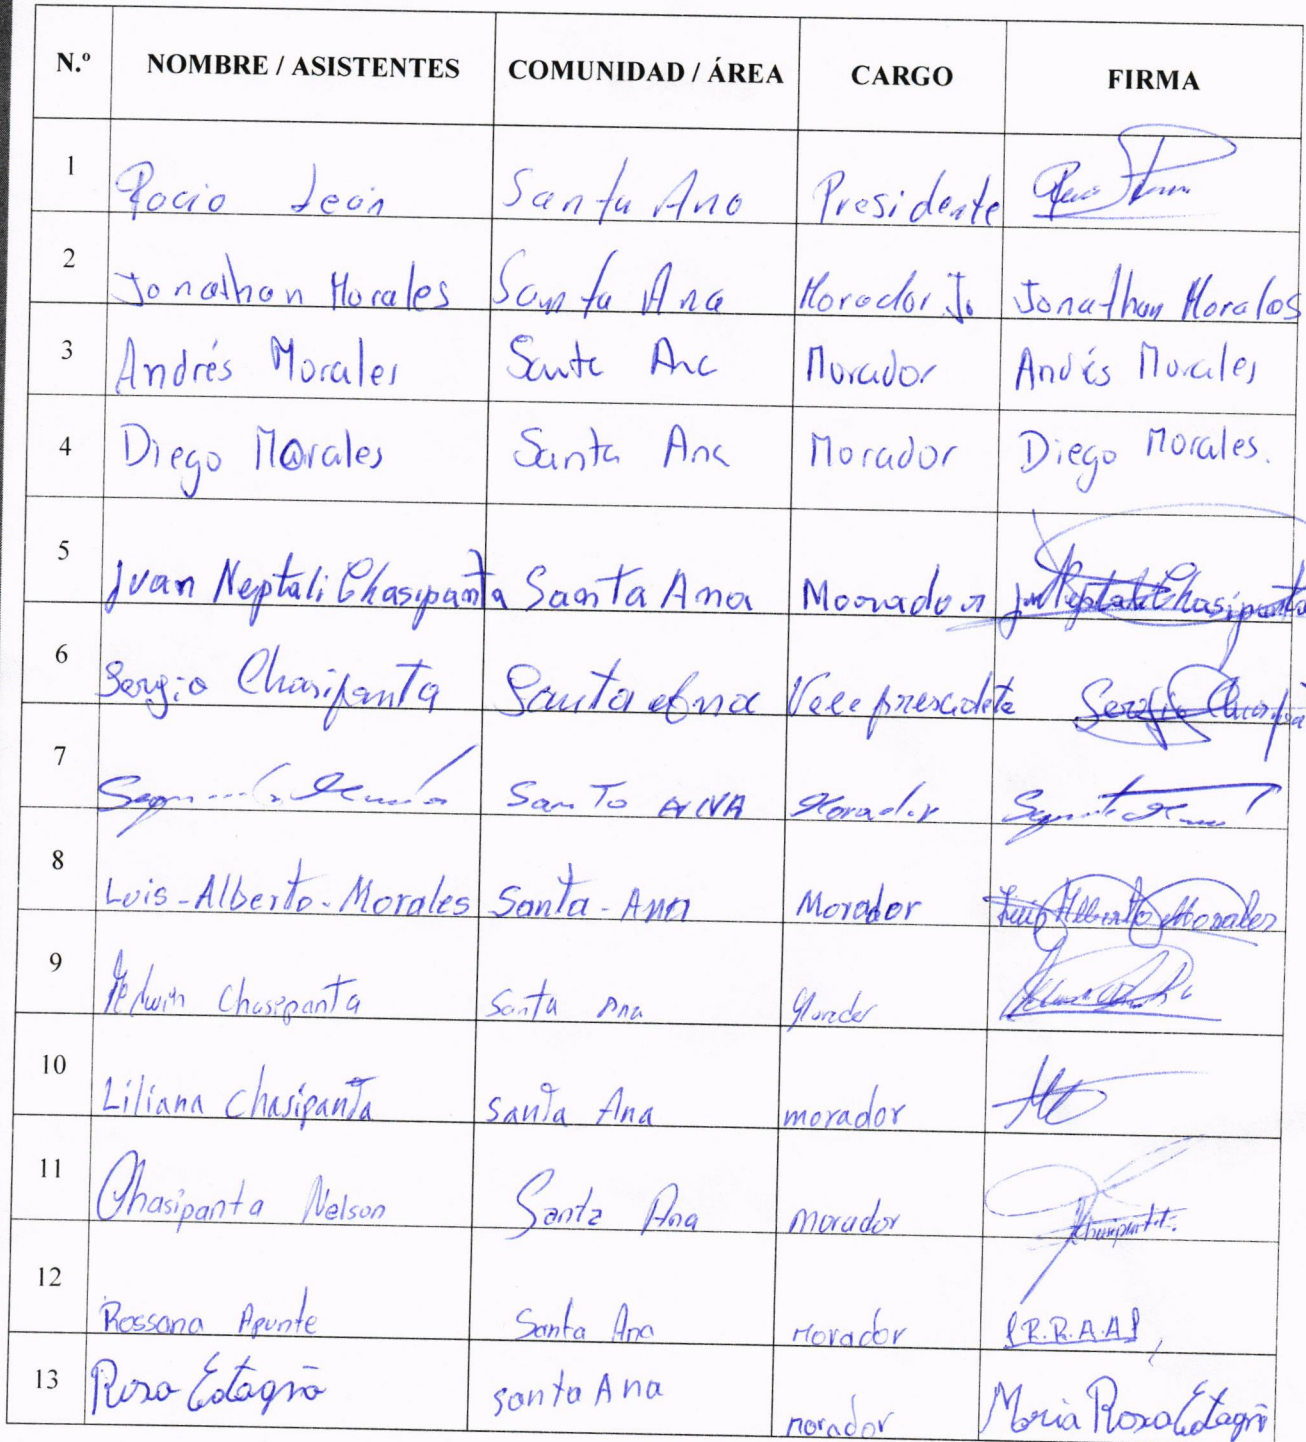 N.º NOMBRE / ASISTENTES COMUNIDAD / ÁREA CARGO FIRMA
1 Rocio León Santa Ana Presidente
2 Jonathan Morales Santa Ana Morador Jo Jonathan Morales
3 Andrés Morales Santa Ana Morador Andrés Morales
4 Diego Morales Santa Ana Morador Diego Morales.
5 Juan Neptali Chasipanta Santa Ana Moorador Neptali Chasipanta
6 Sergio Chasipanta Santa Ana Vicepresidete Sergio
7 Santo ANA Morador
8 Luis-Alberto-Morales Santa-Ana Morador Luis Alberto Morales
9 Edwin Chasipanta Santa Ana
10 Liliana Chasipanta santa Ana morador
11 Chasipanta Nelson Santa Ana morador
12 Rossana Apunte Santa Ana morador R.R.A.A
13 Rosa santa Ana morador Maria Rosa